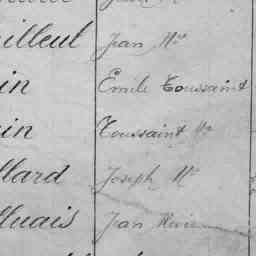 illeul Jean Me
in Emile Toussaint
in Toussaint Me
llard Joseph Me
lluais Jean Marie